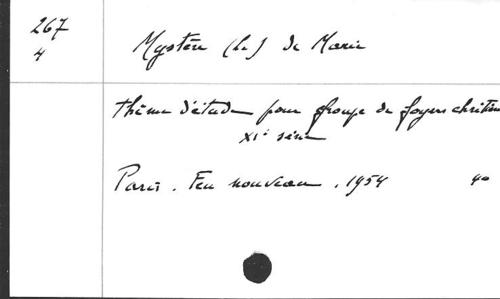 267
4
Mystère (Le) de Marie
Thème d'étude pour groupe de foyers chrétiens
XIe série
Paris. Feu nouveau. 1954 40